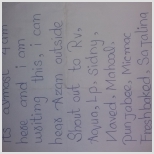 Its almost 4am
here and i am
writing this, i can
hear Azan outside
Shout out to Rv,
Aqua, Lp, sidny,
Moved, Mahool,
punjabee, Micmac
freshbaked. So Jilling